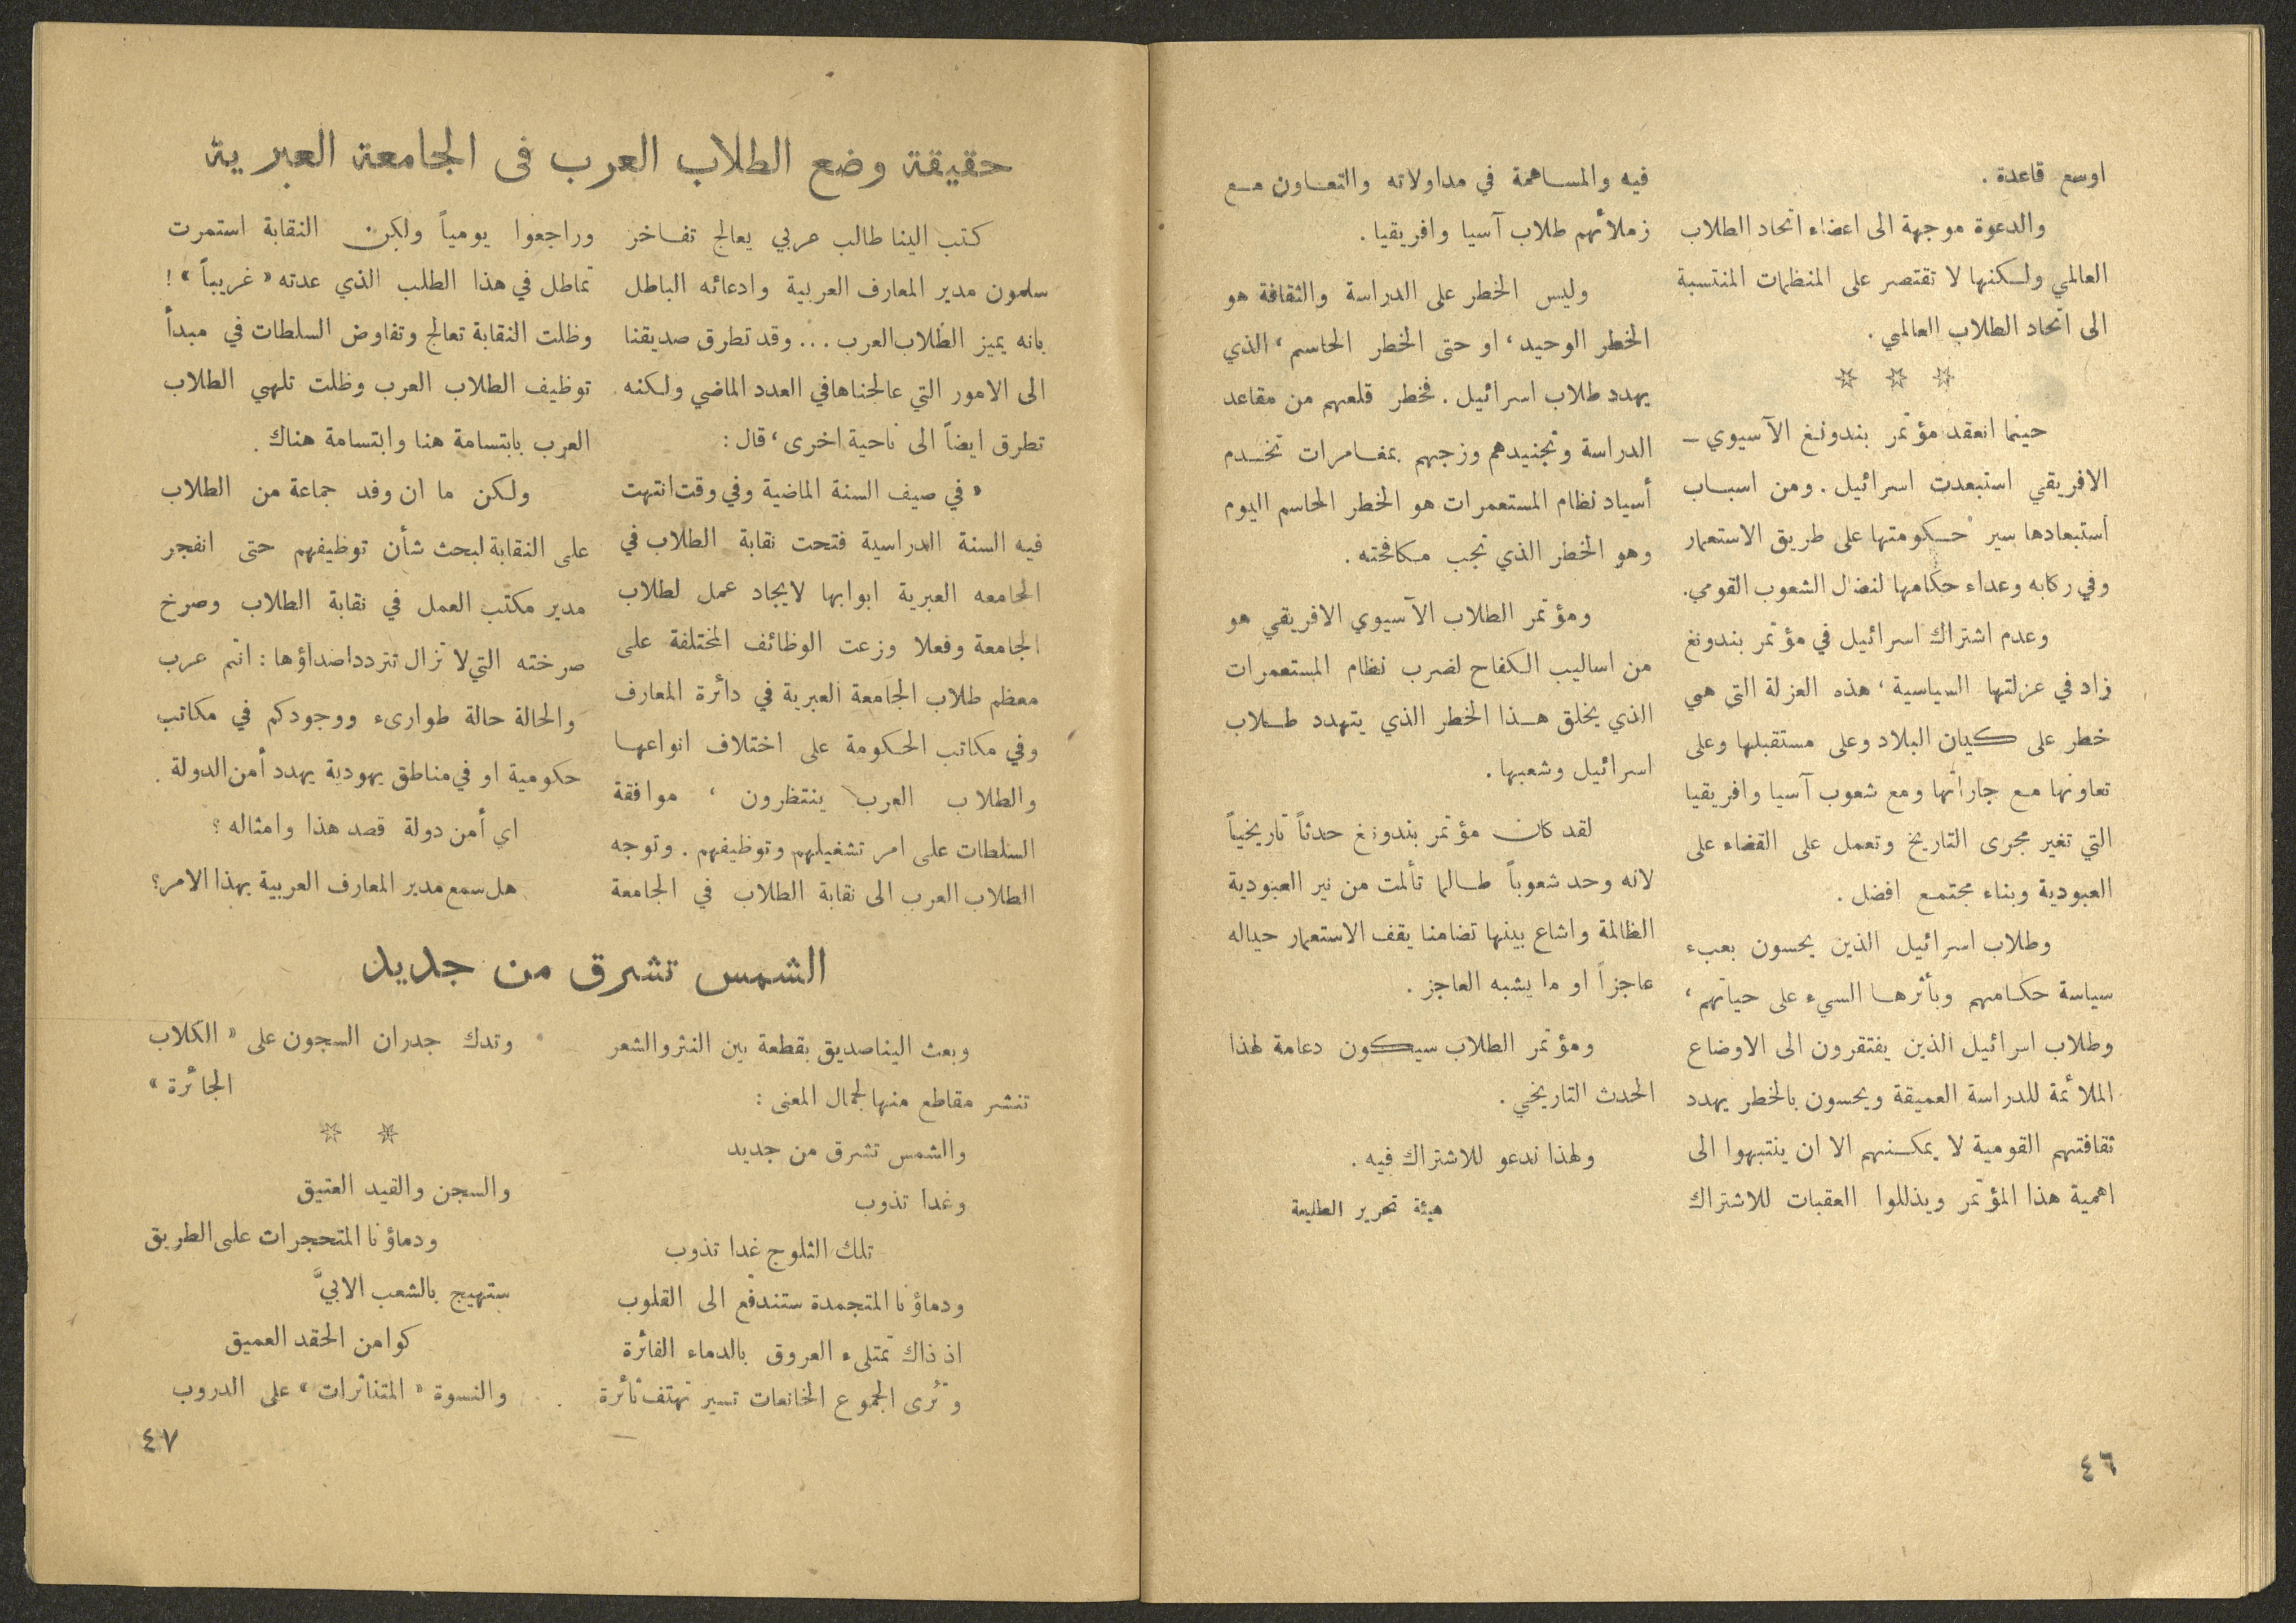 اوسع قاعدة .
والدعوة موجهة الى اعضاء اتحاد الطلاب
العالمي ولكنها لا تقتصر على المنظمات المنتسبة
الى اتحاد الطلاب العالمي .
☆ ☆ ☆
حينما انعقد مؤتمر بندونغ الآسيوي –
الافريقي استبعدت اسرائيل . ومن اسباب
أستبعادها سير حكومتها على طريق الاستعمار
وفي ركابه وعداء حكامها لنضال الشعوب القومي .
وعدم اشتراك اسرائيل في مؤتمر بندونغ
زاد في عزلتها السياسية ، هذه العزلة التي هي
خطر على كيان البلاد وعلى مستقبلها وعلى
تعاونها مع جاراتها ومع شعوب آسيا وافريقيا
التي تغير مجرى التاريخ وتعمل على القضاء على
العبودية وبناء مجتمع افضل .
وطلاب اسرائيل الذين يحسون بعبء
سياسة حكامهم وبأثرها السيء على حياتهم ،
وطلاب اسرائيل الذين يفتقرون الى الاوضاع
الملائمة للدراسة العميقة ويحسون بالخطر يهدد
ثقافتهم القومية لا يمكنهم الا ان ينتبهوا الى
اهمية هذا المؤتمر ويذللوا العقبات للاشتراك
فيه والمساهمة في مداولاته والتعاون مع
زملائهم طلاب آسيا وافريقيا .
وليس الخطر على الدراسة والثقافة هو
الخطر الوحيد ، او حتى الخطر الحاسم ، الذي
يهدد طلاب اسرائيل . فخطر قلعهم من مقاعد
الدراسة وتجنيدهم وزجهم بمغامرات تخدم
أسياد نظام المستعمرات هو الخطر الحاسم اليوم
وهو الخطر الذي تجب مكافحته .
ومؤتمر الطلاب الآسيوي الافريقي هو
من اساليب الكفاح لضرب نظام المستعمرات
الذي يخلق هذا الخطر الذي يتهدد طلاب
اسرائيل وشعبها .
لقد كان مؤتمر بندونغ حدثاً تاريخياً
لانه وحد شعوباً طالما تألمت من نير العبودية
الظالمة واشاع بينها تضامنا يقف الاستعمار حياله
عاجزاً او ما يشبه العاجز .
ومؤتمر الطلاب سيكون دعامة لهذا
الحدث التاريخي .
ولهذا ندعو للاشتراك فيه .
هيئة تحرير الطليعة
٤٦
حقيقة وضع الطلاب العرب فى الجامعة العبرية
كتب الينا طالب عربي يعالج تفاخر
سلمون مدير المعارف العربية وادعائه الباطل
بانه يميز الطلاب العرب ... وقد تطرق صديقنا
الى الامور التي عالجناها في العدد الماضي ولكنه
تطرق ايضاً الى ناحية اخرى ، قال :
« في صيف السنة الماضية وفي وقت انتهت
فيه السنة الدراسية فتحت نقابة الطلاب في
الجامعه العبرية ابوابها لايجاد عمل لطلاب
الجامعة وفعلا وزعت الوظائف المختلفة على
معظم طلاب الجامعة العبرية في دائرة المعارف
وفي مكاتب الحكومة على اختلاف انواعها
والطلاب العرب ينتظرون ، موافقة
السلطات على امر تشغيلهم وتوظيفهم . وتوجه
الطلاب العرب الى نقابة الطلاب في الجامعة
وراجعوا يومياً ولكن النقابة استمرت
تماطل في هذا الطلب الذي عدته « غريباً » !
وظلت النقابة تعالج وتفاوض السلطات في مبدأ
توظيف الطلاب العرب وظلت تلهي الطلاب
العرب بابتسامة هنا وابتسامة هناك .
ولكن ما ان وفد جماعة من الطلاب
على النقابة لبحث شأن توظيفهم حتى انفجر
مدير مكتب العمل في نقابة الطلاب وصرخ
صرخته التي لا تزال تتردد اصداؤها : انتم عرب
والحالة حالة طوارىء ووجودكم في مكاتب
حكومية او في مناطق يهودية يهدد أمن الدولة .
اي أمن دولة قصد هذا وامثاله ؟
هل سمع مدير المعارف العربية بهذا الامر ؟
الشمس تشرق من جديد
وبعث الينا صديق بقطعة بين النثر والشعر
تنشر مقاطع منها لجمال المعنى :
والشمس تشرق من جديد
وغدا تذوب
تلك الثلوج غدا تذوب
ودماؤنا المتجمدة ستندفع الى القلوب
اذ ذاك تمتلىء العروق بالدماء الفائرة
وتُرى الجموع الخانعات تسير تهتف ثائرة
وتدك جدران السجون على « الكلاب
الجائرة »
☆ ☆
والسجن والقيد العتيق
ودماؤنا المتحجرات على الطريق
ستهيج بالشعب الابيَّ
كوامن الحقد العميق
والنسوة « المتناثرات » على الدروب
٤٧